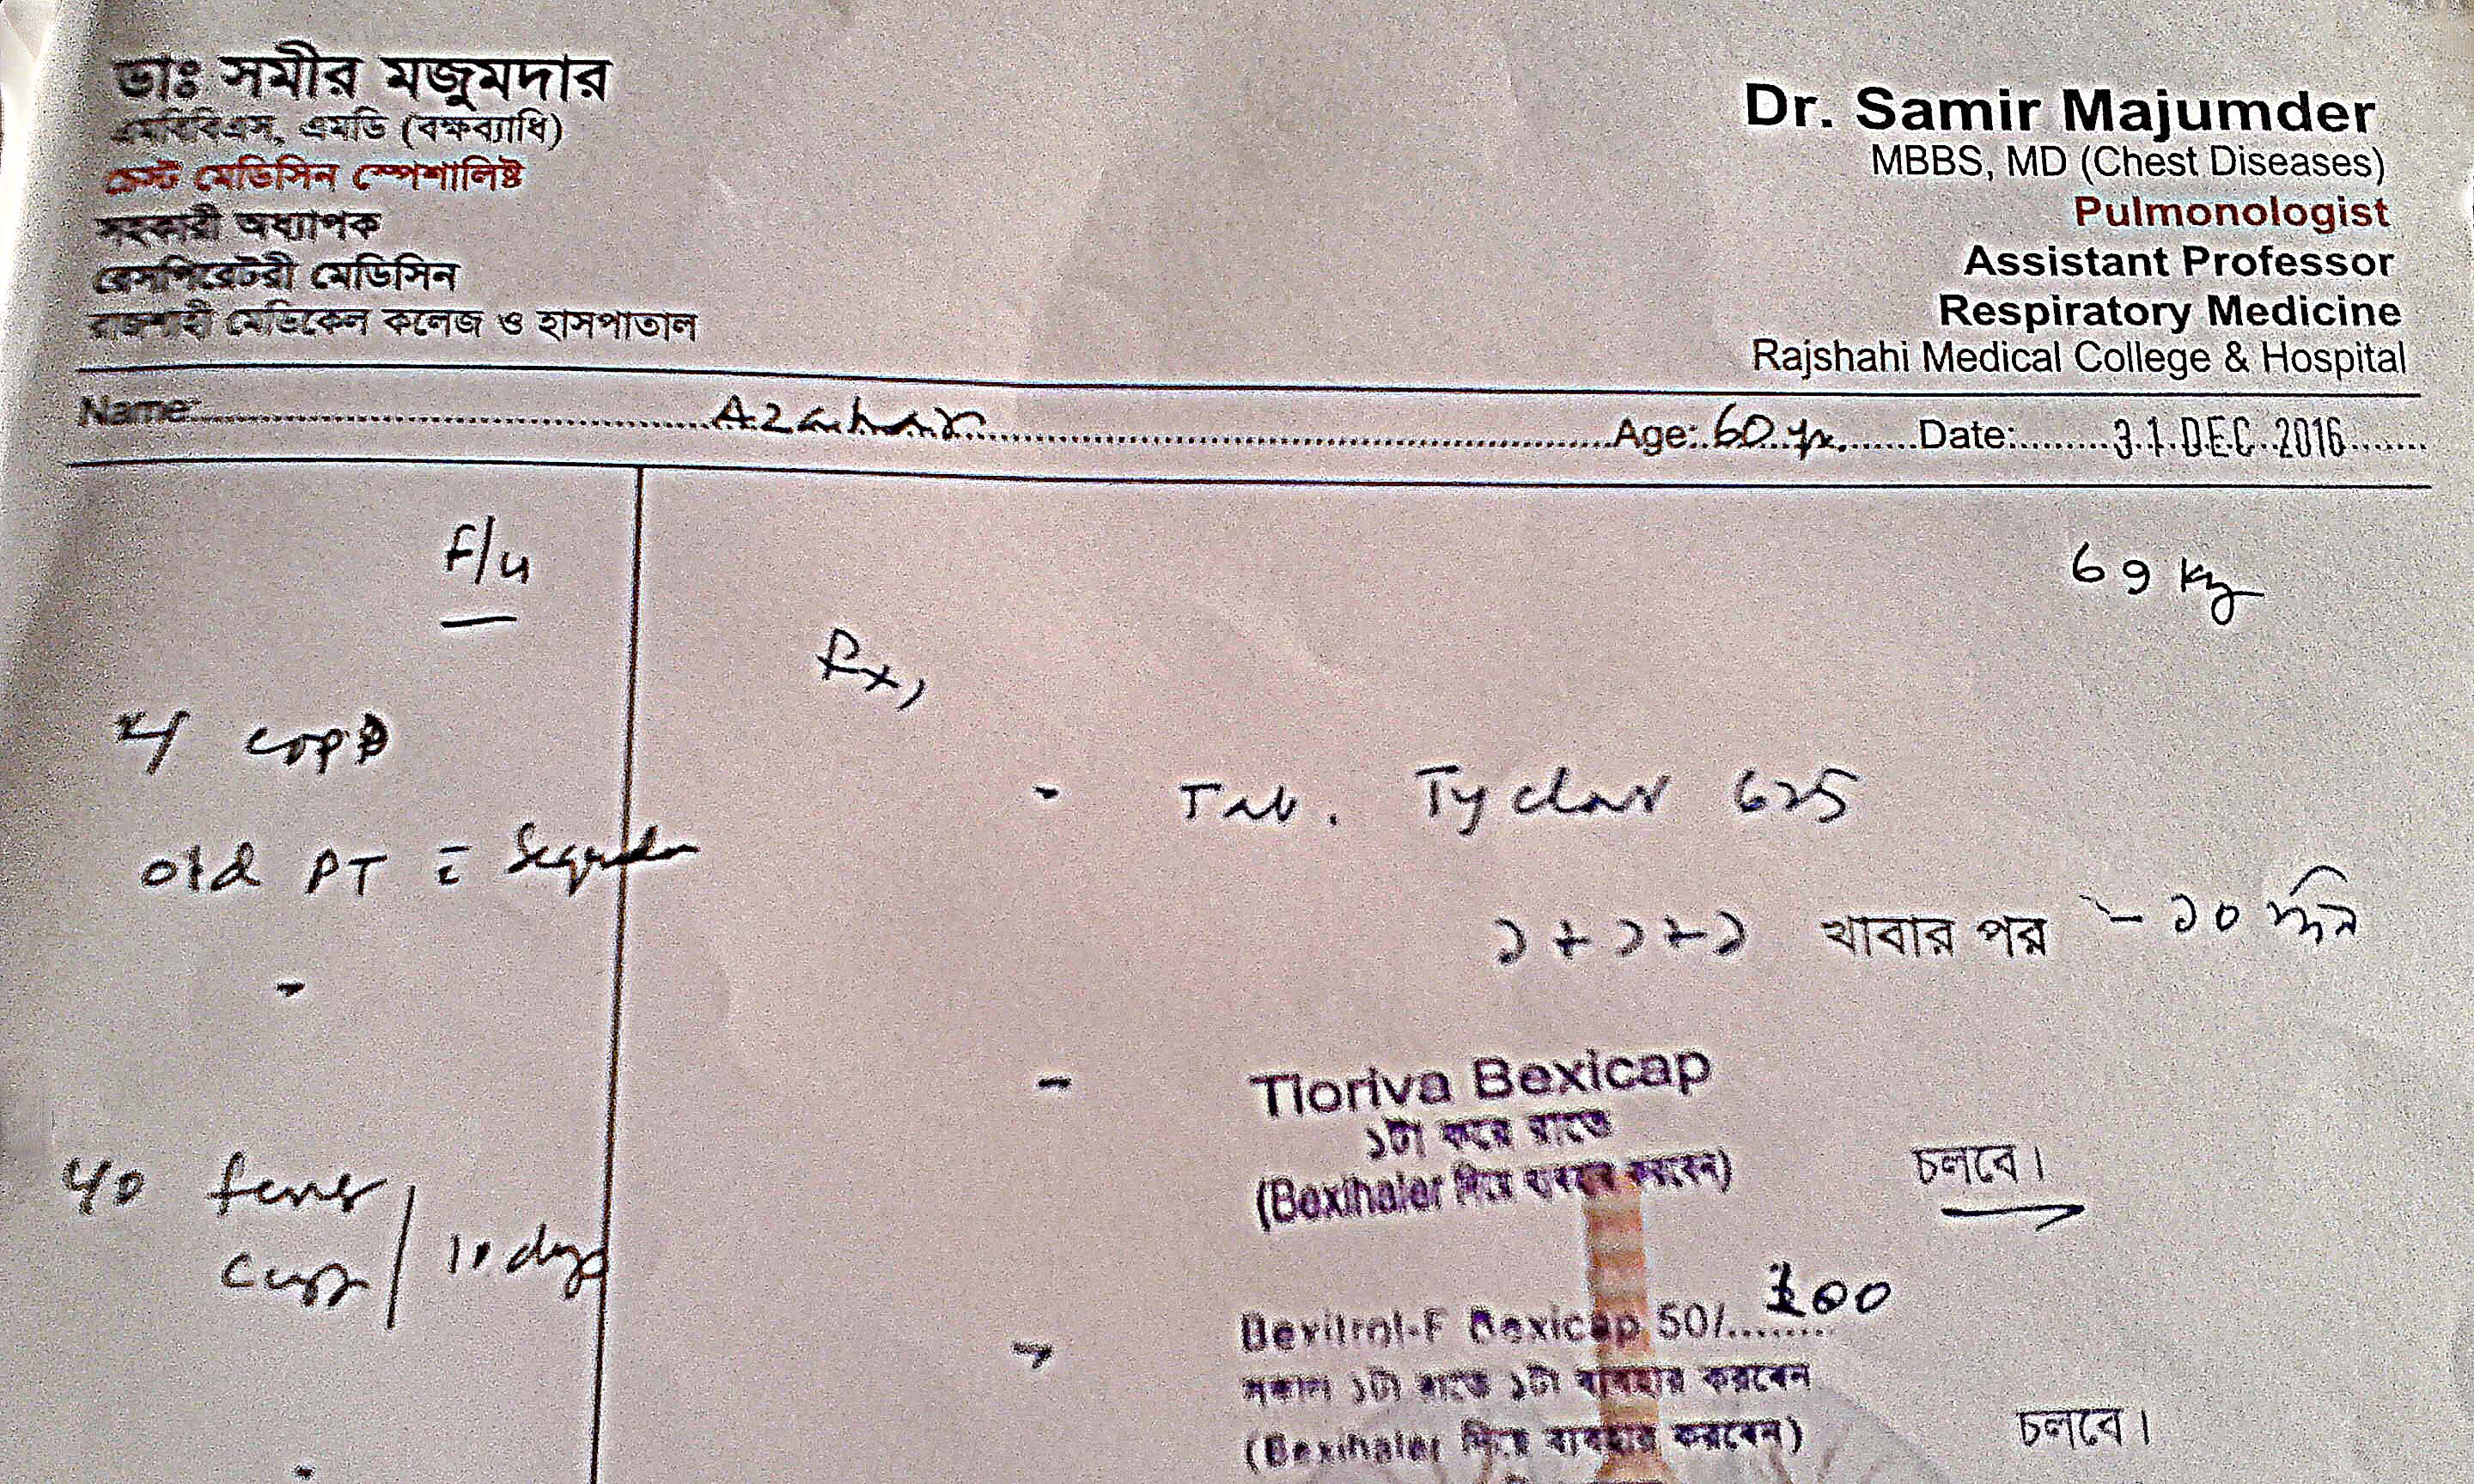 ডাঃ সমীর মজুমদার
এমবিবিএস, এমডি (বক্ষব্যাধি)
চেস্ট মেডিসিন স্পেশালিষ্ট
সহকারী অধ্যাপক
রেসপিরেটরী মেডিসিন
রাজশাহী মেডিকেল কলেজ ও হাসপাতাল
Dr. Samir Majumder
MBBS, MD (Chest Diseases)
Pulmonologist
Assistant Professor
Respiratory Medicine
Rajshahi Medical College & Hospital
Name: Azahar Age: 60 yr. Date: 31 DEC 2016
F/u
COPD
old PT c̄
fever
10 days
69 kg
Rx,
- Tab. Tyclav 625
১+১+১ খাবার পর - ১০ দিন
- Tioriva Bexicap
১টা করে রাতে
(Bexihaler দিয়ে ব্যবহার করবেন) চলবে।
Bexitrol-F Bexicap 50/........ 100
সকালে ১টা রাতে ১টা ব্যবহার করবেন
(Bexihaler দিয়ে ব্যবহার করবেন) চলবে।